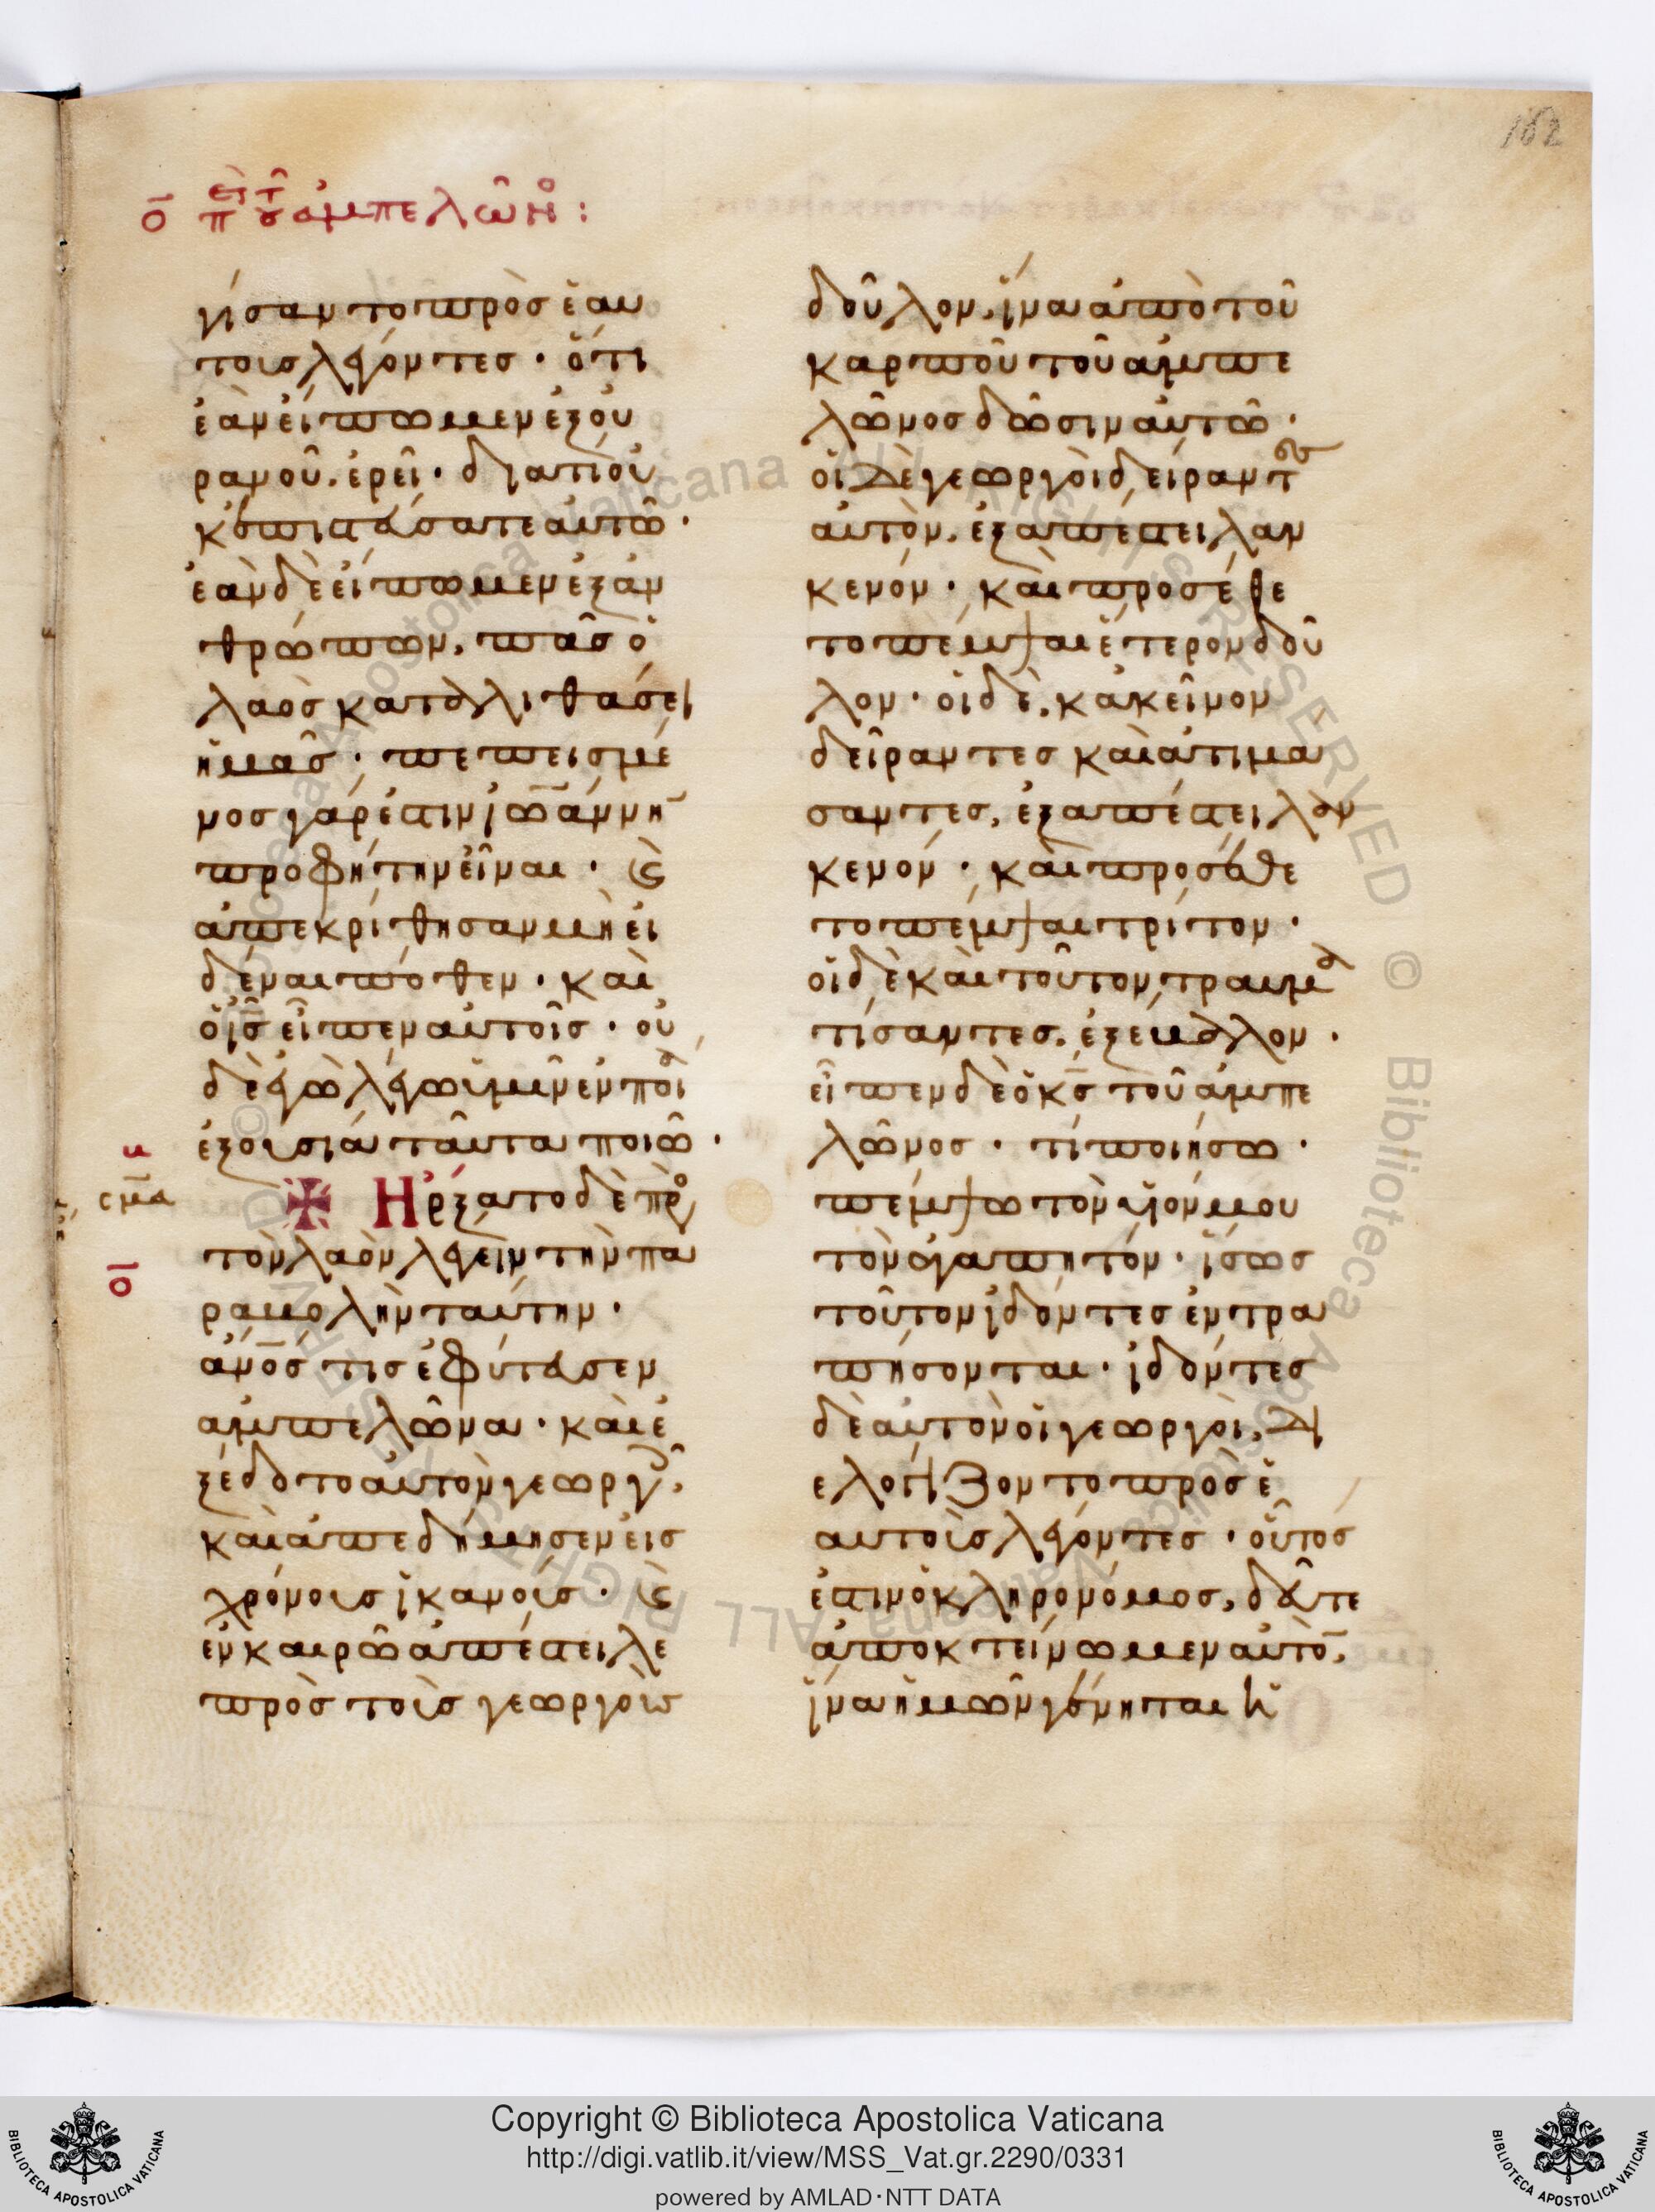 162
ο̅ περὶ τοῦ ἀμπελῶνο:
γίσαντο πρὸσ ἑαυ
τοισ λέγόντεσ · ὅτι
ἐὰν εἴπωμεν ἐξ οὐ
ρανοῦ, ἐρεῖ · διατί οὐ
κ ἐπιστεύσατε αὐτῶ ·
ἐὰν δὲ εἴπωμεν ἐξ ἀν
θρώπων, πᾶσ ὁ
λαὸσ καταλιθάσει
ἡμᾶσ · πεπεισμέ
νοσ γάρ ἐστιν ἰω̅άννη̅
προφήτην εἶναι · ϛ̀
ἀπεκρίθησαν μὴ εἰ
δέναι πόθεν · καὶ
ὁ ι̅σ̅ εἶπεν αὐτοῖσ · οὐ
δὲ ἐγὼ λέγω ὑμῖν ἐν ποία
ἐξουσία ταῦτα ποιῶ ·
σμα
Ἤρξατο δὲ πρὸ
ι̅ο̅
τὸν λαὸν λέγειν τὴν πα
ραβολὴν ταύτην ·
ἀν̅ο̅σ τισ ἐφύτευσεν
ἀμπελῶνα · καὶ ἐ
ξέδοτο αὐτὸν γεωργοῖ,
καὶ ἀπεδήμησεν εἰσ
χρόνουσ ἱκανούσ · ϛ̀
ἐν καιρῶ ἀπέστειλε
πρὸσ τοὺσ γεωργοὺσ
δοῦλον, ἵνα ἀπὸ τοῦ
καρποῦ τοῦ ἀμπε
λῶνοσ δῶσιν αὐτῶ ·
οἱ δὲ γεωργοὶ δείραντεσ
αὐτὸν, ἐξαπέστειλαν
κενόν · καὶ προσέθε
το πέμψαι ἕτερον δοῦ
λον · οἱ δὲ, κἀκεῖνον
δείραντεσ καὶ ἀτιμα
σαντεσ, ἐξαπέστειλαν
κενόν · καὶ προσέθε
το πέμψαι τρίτον ·
οἱ δὲ καὶ τοῦτον, τραυμα
τίσαντεσ, ἐξέβαλον ·
εἶπεν δὲ ὁ κ̅σ̅ τοῦ ἀμπε
λῶνοσ · τί ποιήσω ·
πέμψω τὸν υἱόν μου
τὸν ἀγαπητόν · ἴσωσ
τοῦτον ἰδόντεσ ἐντρα
πήσονται · ἰδόντεσ
δὲ αὐτὸν οἱ γεωργοὶ, δι
ελογίζοντο πρὸσ ἑ
αυτοὺσ λέγόντεσ · οὗτόσ
ἐστιν ὁ κληρονόμοσ, δεῦτε
ἀποκτείνωμεν αὐτὸ̅,
ἵνα ἡμῶν γένηται ἡ
Copyright © Biblioteca Apostolica Vaticana
http://digi.vatlib.it/view/MSS_Vat.gr.2290/0331
powered by AMLAD·NTT DATA
BIBLIOTECA APOSTOLICA VATICANA
BIBLIOTECA APOSTOLICA VATICANA